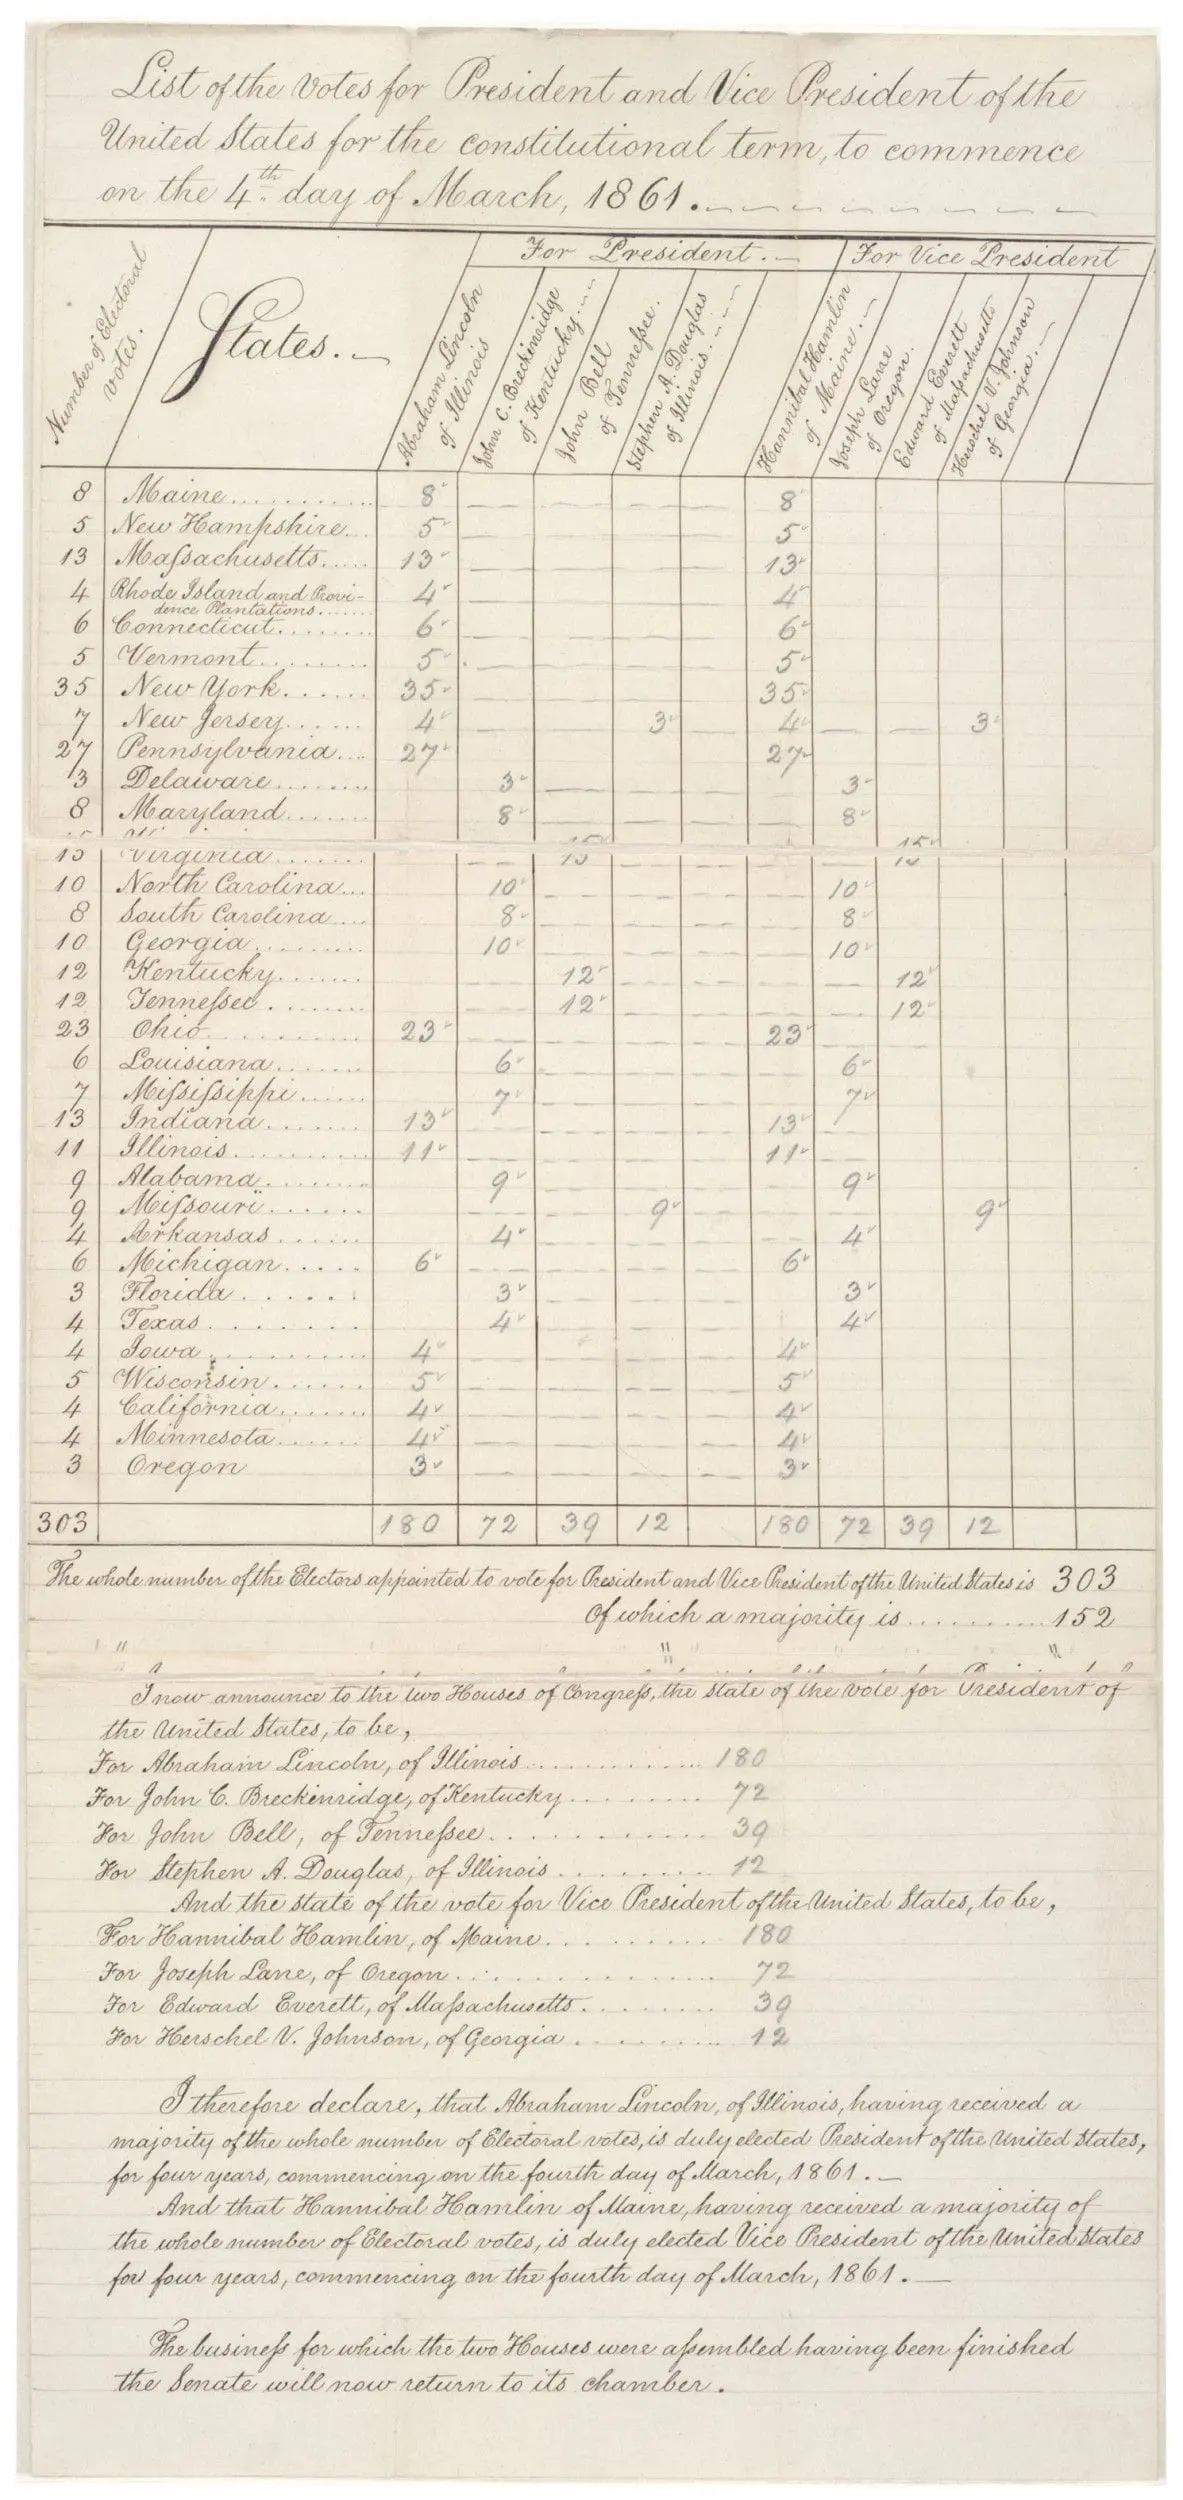 List of the votes for President and Vice President of the
United States for the constitutional term, to commence
on the 4th day of March, 1861.
For President. For Vice President
Number of Electoral votes.
States.
Abraham Lincoln of Illinois
John C. Breckinridge of Kentucky
John Bell of Tenneſsee.
Stephen A. Douglas of Illinois.
Hannibal Hamlin of Maine.
Joseph Lane of Oregon.
Edward Everett of Maſsachusetts
Herschel V. Johnson of Georgia.
8 Maine 8 8
5 New Hampshire 5 5
13 Maſsachusetts 13 13
4 Rhode Island and Provi-
dence Plantations 4 4
6 Connecticut 6 6
5 Vermont 5 5
35 New York 35 35
7 New Jersey 4 3 4 3
27 Pennsylvania 27 27
3 Delaware 3 3
8 Maryland 8 8
15 Virginia 15 15
10 North Carolina 10 10
8 South Carolina 8 8
10 Georgia 10 10
12 Kentucky 12 12
12 Tenneſsee 12 12
23 Ohio 23 23
6 Louisiana 6 6
7 Miſsiſsippi 7 7
13 Indiana 13 13
11 Illinois 11 11
9 Alabama 9 9
9 Miſsouri 9 9
4 Arkansas 4 4
6 Michigan 6 6
3 Florida 3 3
4 Texas 4 4
4 Iowa 4 4
5 Wisconsin 5 5
4 California 4 4
4 Minnesota 4 4
3 Oregon 3 3
303 180 72 39 12 180 72 39 12
The whole number of the Electors appointed to vote for President and Vice President of the United States is 303
Of which a majority is 152
I now announce to the two Houses of Congreſs, the state of the vote for President of
the United States, to be,
For Abraham Lincoln, of Illinois 180
For John C. Breckenridge, of Kentucky 72
For John Bell, of Tenneſsee 39
For Stephen A. Douglas, of Illinois 12
And the state of the vote for Vice President of the United States, to be,
For Hannibal Hamlin, of Maine 180
For Joseph Lane, of Oregon 72
For Edward Everett, of Maſsachusetts 39
For Herschel V. Johnson, of Georgia 12
I therefore declare, that Abraham Lincoln, of Illinois, having received a
majority of the whole number of Electoral votes, is duly elected President of the United States,
for four years, commencing on the fourth day of March, 1861.
And that Hannibal Hamlin of Maine, having received a majority of
the whole number of Electoral votes, is duly elected Vice President of the United States
for four years, commencing on the fourth day of March, 1861.
The buſineſs for which the two Houses were aſsembled having been finished
the Senate will now return to its chamber.